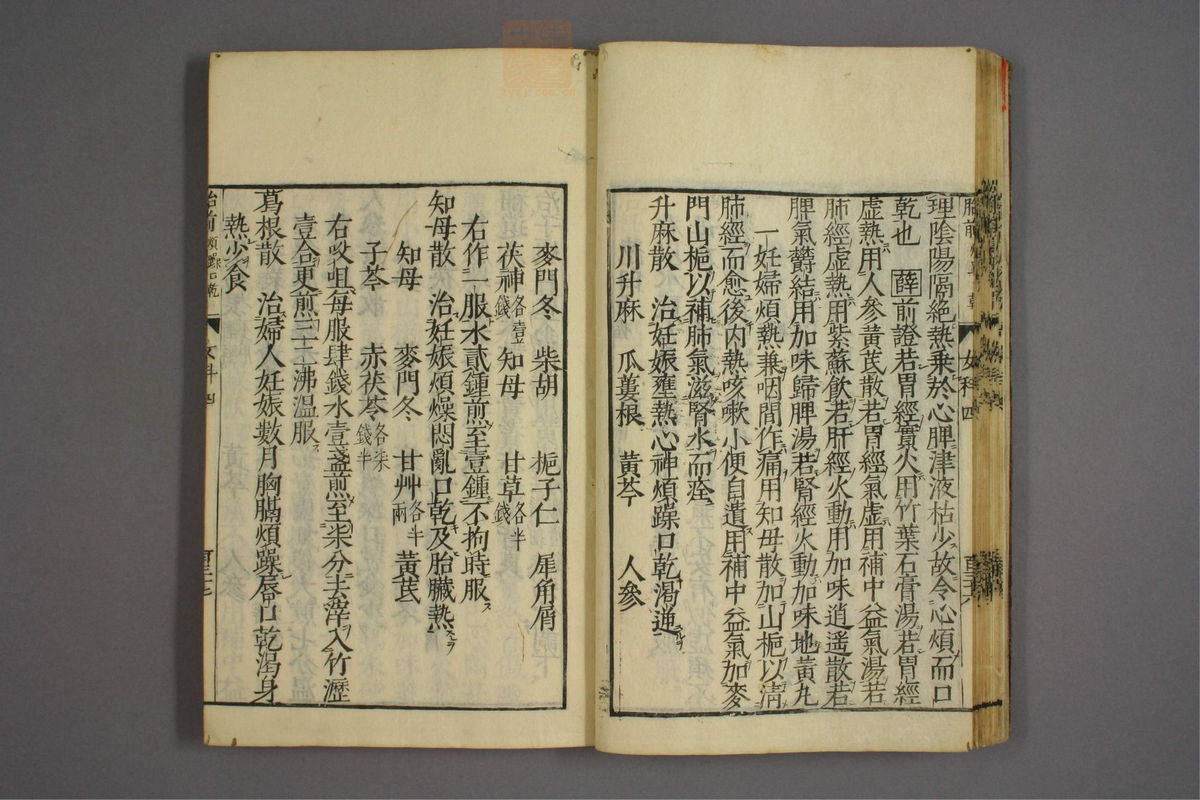 理陰陽隔絶熱乗於心脾津液枯少故令心煩而口
乾也 薛前證若胃經實火用竹葉石膏湯若胃經
虚熱用人參黄芪散若胃經氣虚用補中益氣湯若
肺經虚熱用紫蘇飲若肝經火動用加味逍遥散若
脾氣欝結用加味歸脾湯若腎經火動加味地黄丸
一妊婦煩熱兼咽間作痛用知母散加山梔以清
肺經而愈後内熱咳嗽小便自遺用補中益氣加麥
門山梔以補肺氣滋腎水而痊
升麻散 治妊娠壅熱心神煩躁口乾渇逆
川升麻 瓜蔞根 黄芩 人參
麥門冬 柴胡 梔子仁 犀角屑
茯神各壹錢 知母 甘草各半錢
右作一服水貳鍾煎至壹鍾不拘時服
知母散 治妊娠煩燥悶亂口乾及胎臓熱
知母 麥門冬 甘艸各半兩 黄芪
子芩 赤茯苓各柒錢半
右㕮咀每服肆錢水壹盞煎至柒分去滓入竹瀝
壹合更煎三二沸温服
葛根散 治婦人妊娠數月胸膈煩躁唇口乾渇身
熱少食
女科四